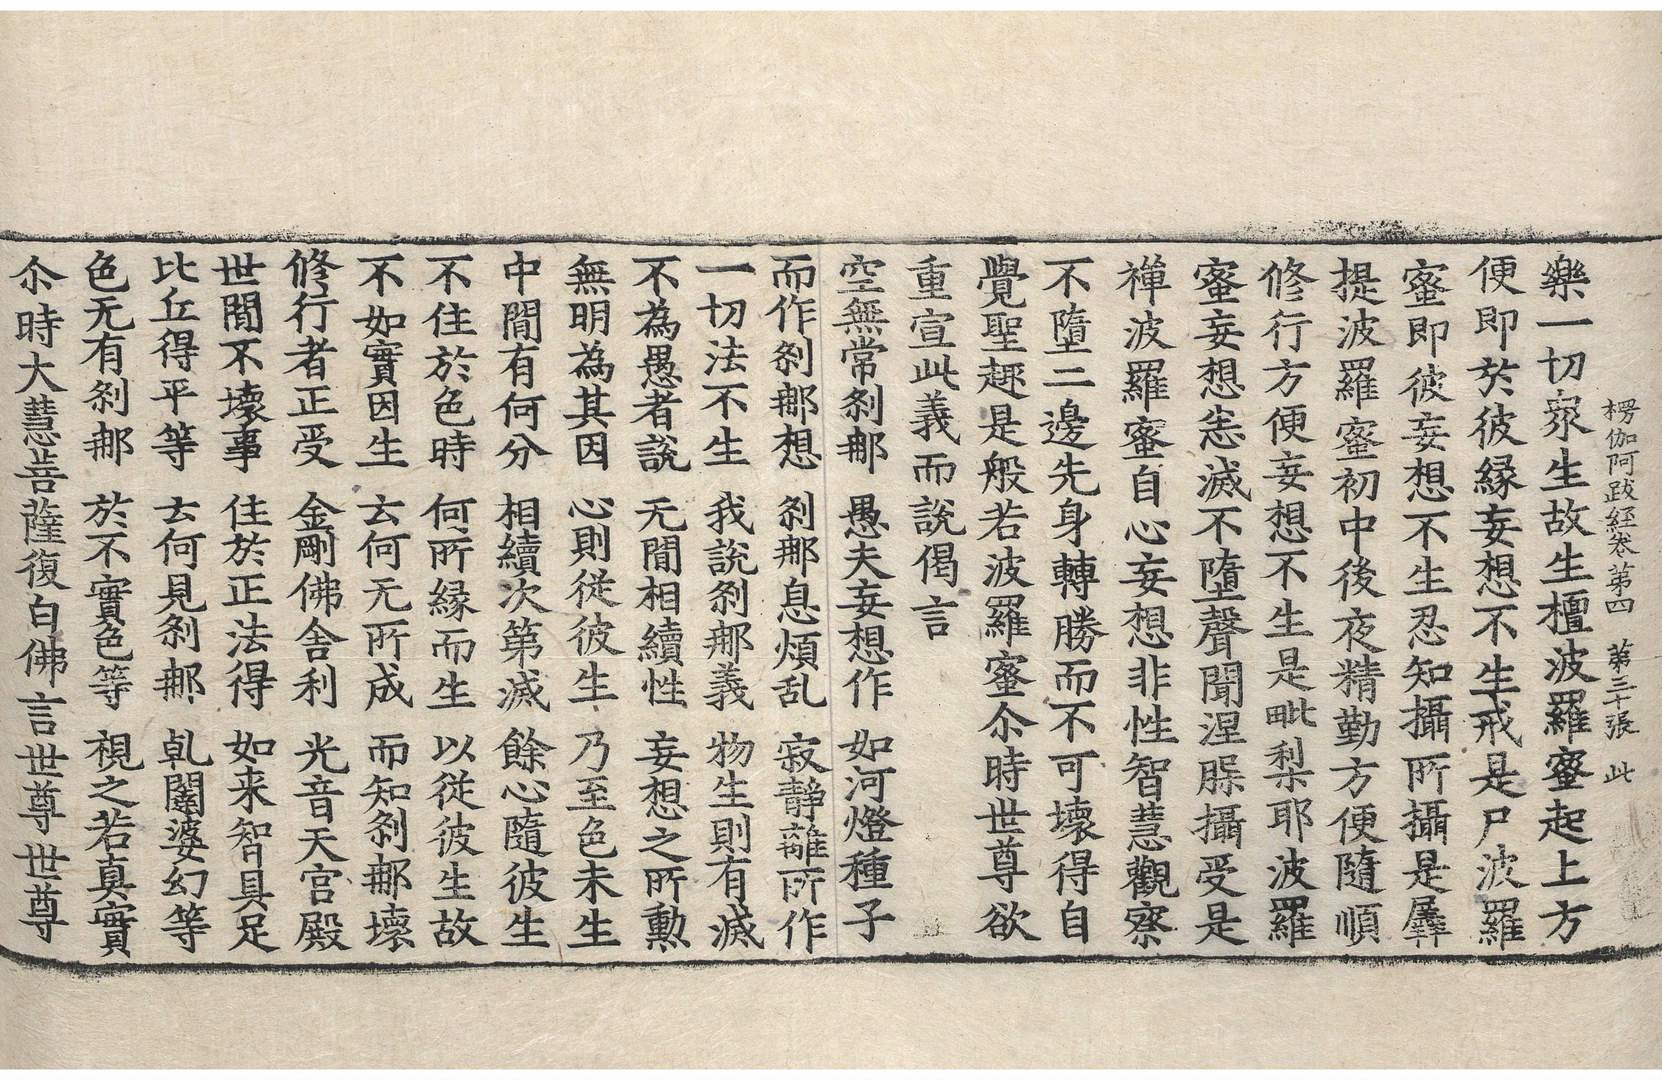 楞伽阿跋経卷第四　第三十張　此
樂一切衆生故生檀波羅蜜起上方
便即於彼縁妄想不生戒是尸波羅
蜜即彼妄想不生忍知攝所攝是羼
提波羅蜜初中後夜精勤方便隨順
修行方便妄想不生是毗梨耶波羅
蜜妄想悉滅不墮聲聞涅槃攝受是
禪波羅蜜自心妄想非性智慧觀察
不墮二邊先身轉勝而不可壞得自
覺聖趣是般若波羅蜜尒時世尊欲
重宣此義而說偈言
空無常剎那　愚夫妄想作　如河燈種子
而作剎那想　剎那息煩乱　寂靜離所作
一切法不生　我說剎那義　物生則有滅
不為愚者說　无間相續性　妄想之所勲
無明為其因　心則従彼生　乃至色未生
中間有何分　相續次第滅　餘心隨彼生
不住於色時　何所縁而生　以従彼生故
不如實因生　云何无所成　而知剎那壞
修行者正受　金剛佛舍利　光音天宮殿
世間不壞事　住於正法得　如来智具足
比丘得平等　云何見剎那　乹闥婆幻等
色无有剎那　於不實色等　視之若真實
尒時大慧菩薩復白佛言世尊世尊